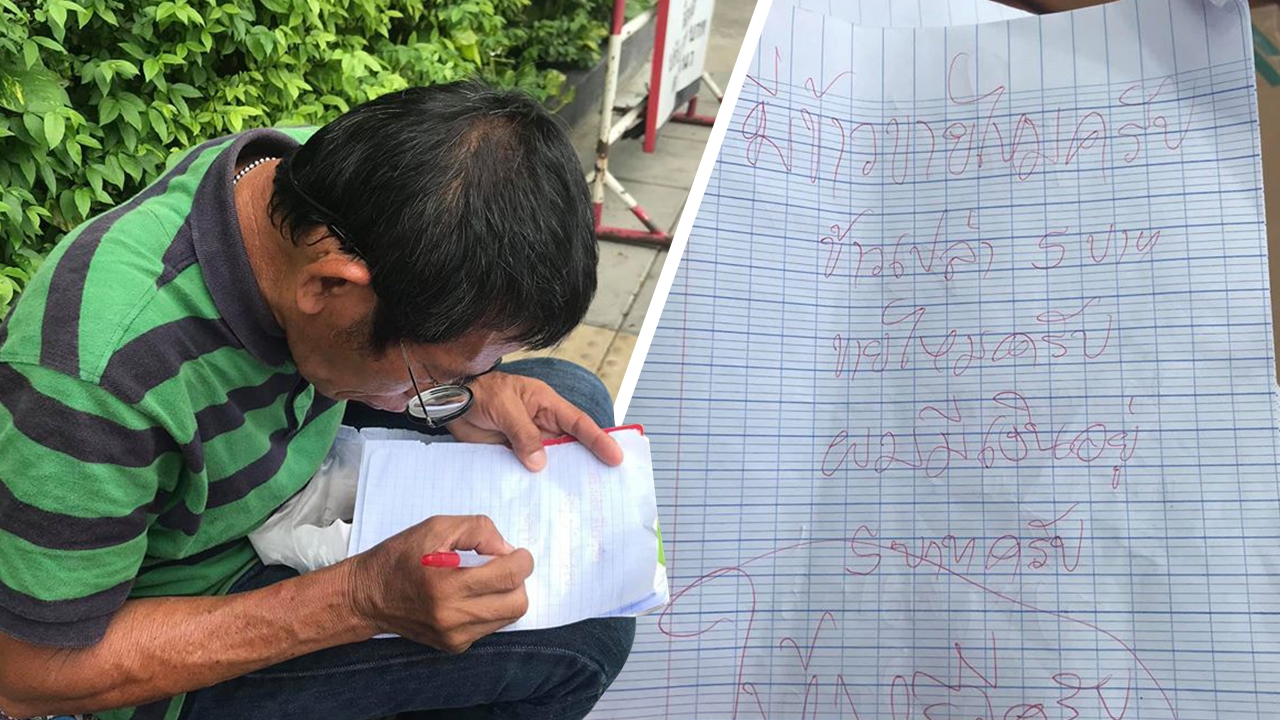 มีข้าวขายไหมครับ
ข้าวเปล่า 5 บาท
ขายไหมครับ
ผมมีเงินอยู่
5 บาทครับ